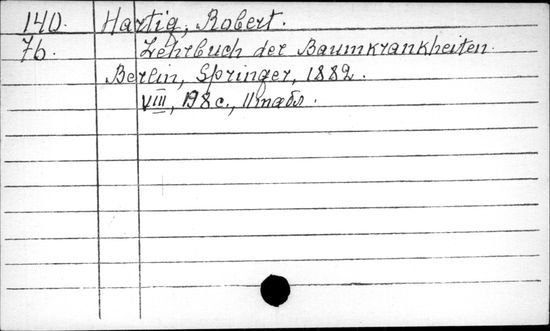 140. Hartig, Robert.
76. Lehrbuch der Baumkrankheiten.
Berlin, Springer, 1882.
VIII, 198 c., 11 табл.